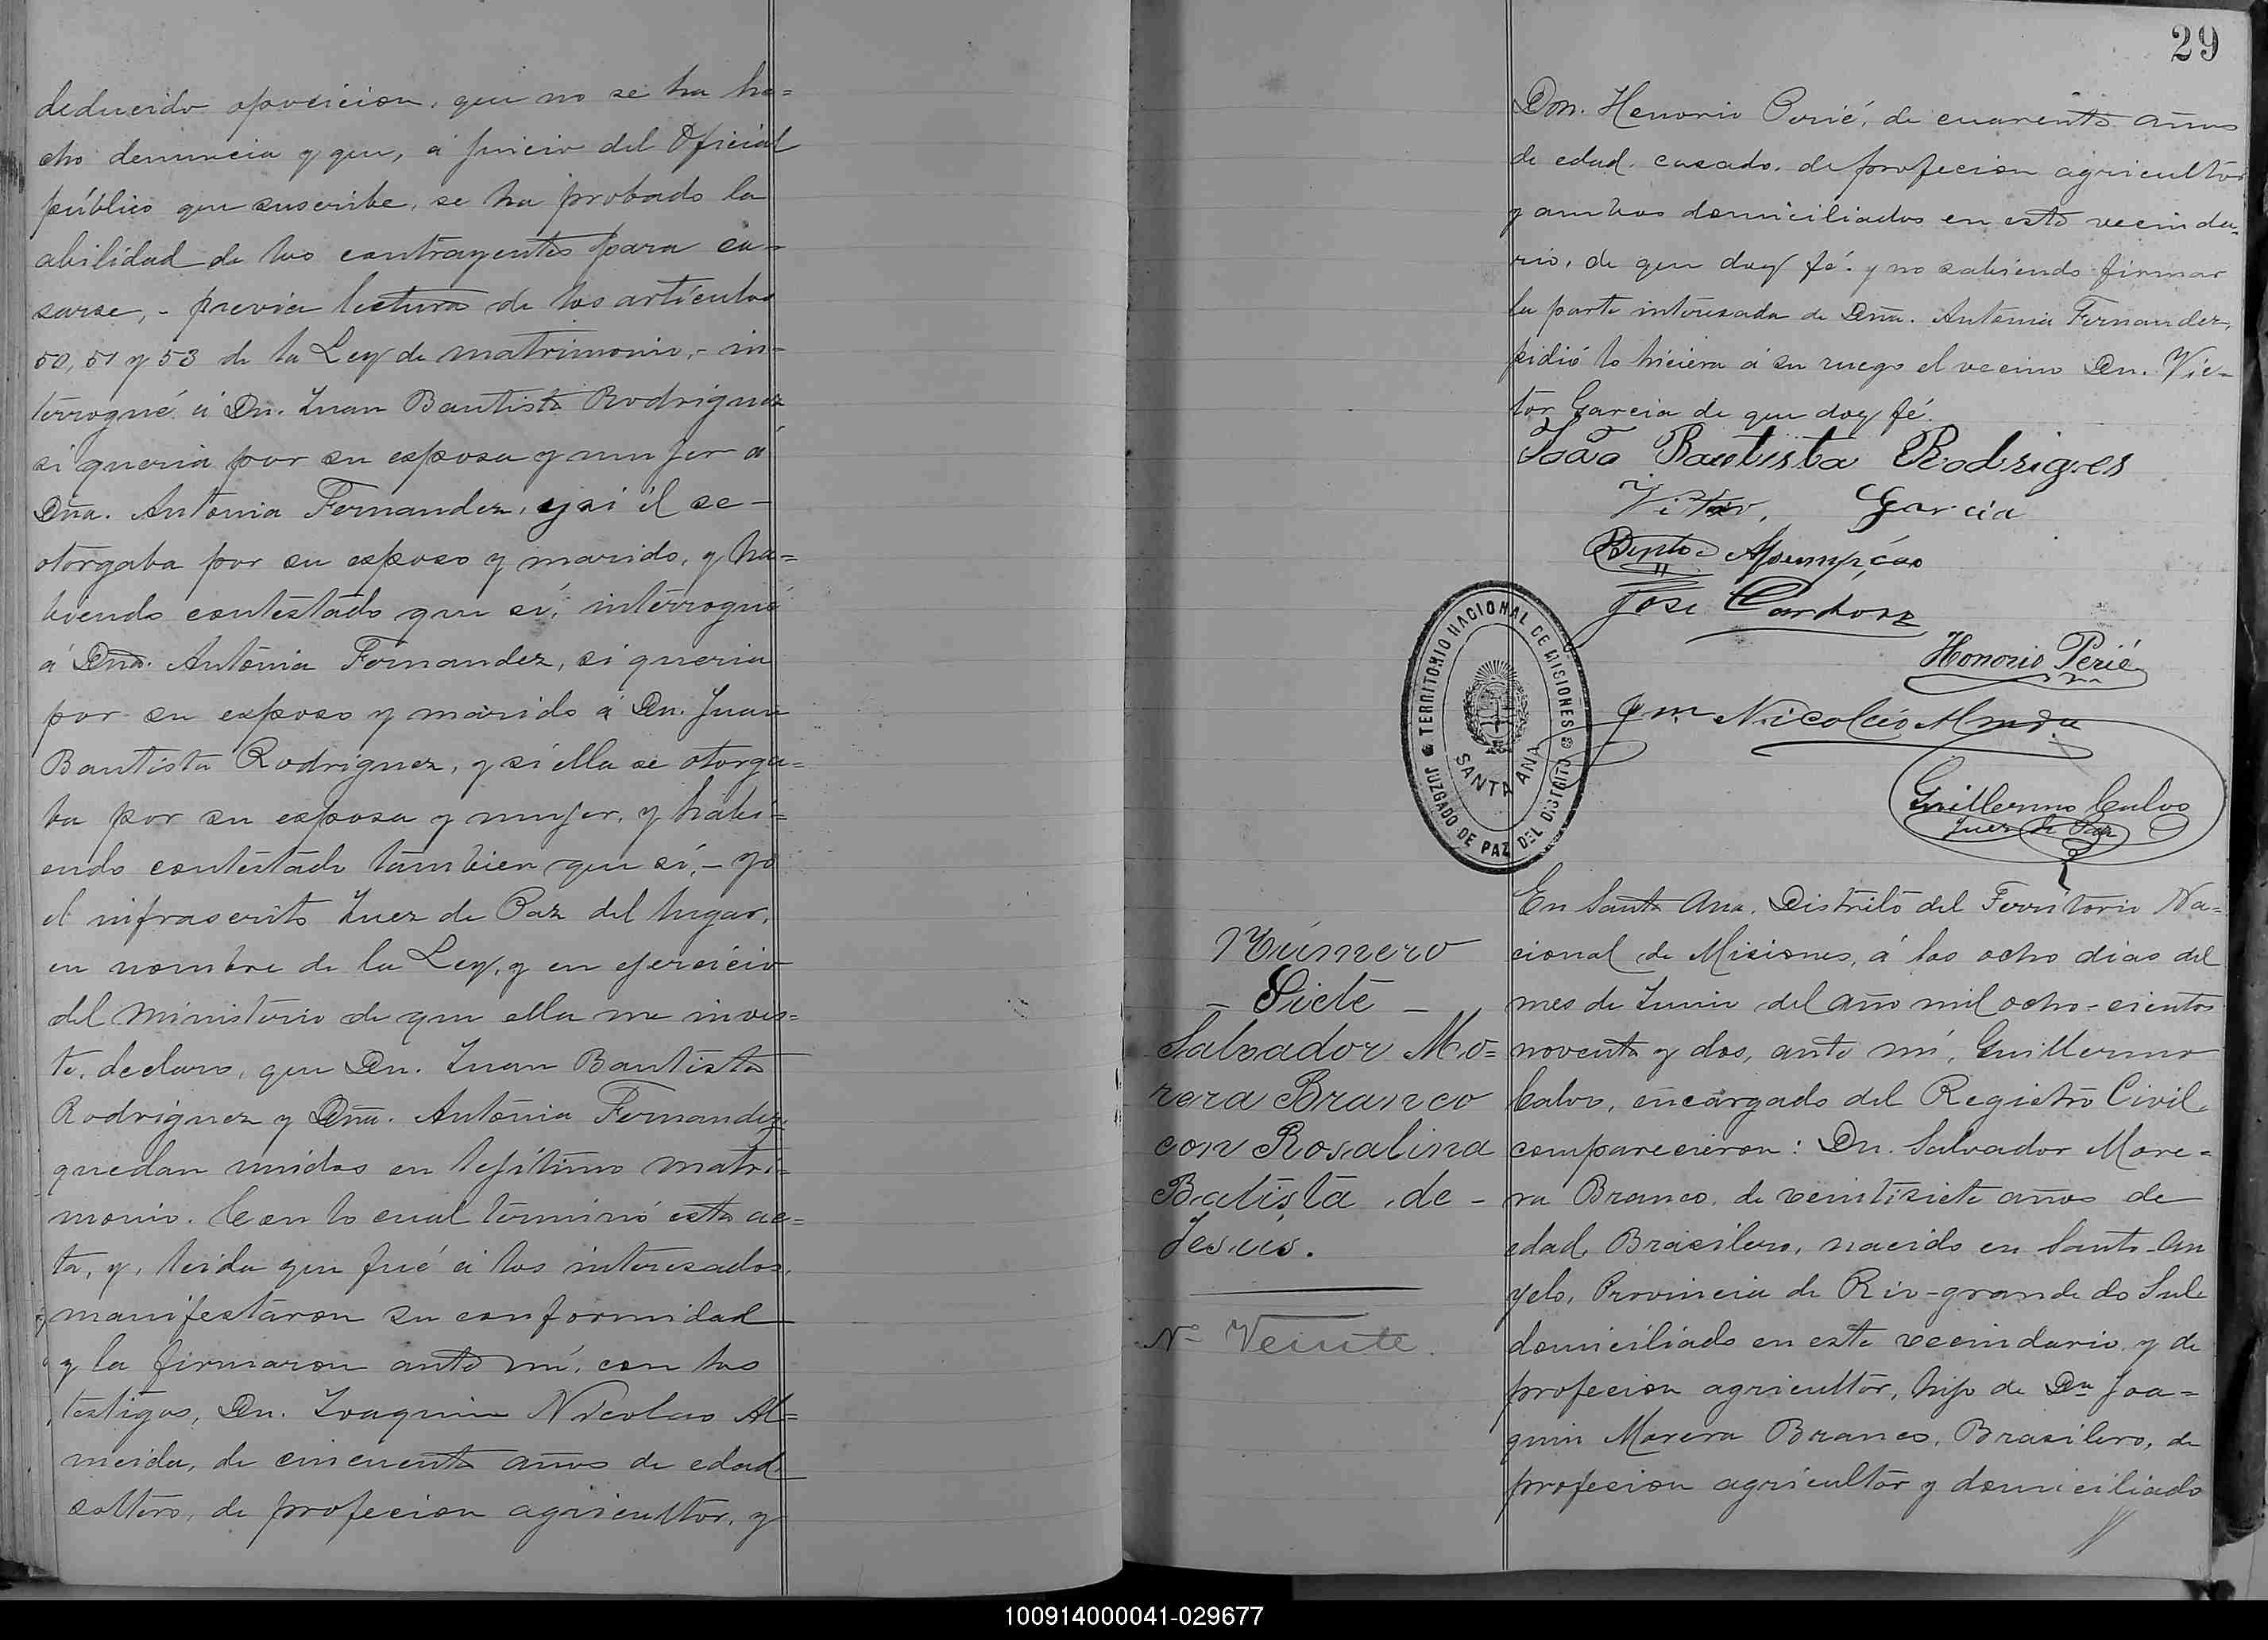 deducido oposicion, que no se ha he=
cho denuncia y que, á juicio del Oficial
público que suscribe, se ha probado la
abilidad de los contrayentes para ca-
sarse, - previa lectura de los artículos
50, 51 y 53 de la Ley de matrimonio, - in-
terrogué á Dn. Juan Bautista Rodriguez
si queria por su esposa y mujer á
Dña. Antonia Fernandez, y si él se -
otorgaba por su esposo y marido, y ha=
biendo contestado que sí, interrogué
á Dña. Antonia Fernandez, si queria
por su esposo y marido á Dn. Juan
Bautista Rodriguez, y si ella se otorga=
ba por su esposa y mujer, y habi=
endo contestado tambien que sí, - yo
el infrascrito Juez de Paz del lugar,
en nombre de la Ley, y en ejercicio
del ministerio de que ella me invis=
te, declaro, que Dn. Juan Bautista
Rodriguez y Dña. Antonia Fernandez
quedan unidos en lejítimo matri=
monio. Con lo cual terminó esta ac=
ta, y, leida que fué á los interesados,
manifestaron su conformidad
y la firmaron ante mí, con los
testigos, Dn. Joaquin Nicolas Al=
meida, de cincuenta años de edad
soltero, de profecion agricultor, y
29
Don. Henorio Perié, de cuarenta años
de edad, casado, de profecion agricultor
y ambos domiciliados en este vecinda=
rio, de que doy fé. y no sabiendo firmar
la parte interesada de Dña. Antonia Fernandez,
pidió lo hiciera á su ruego el vecino Dn. Vic-
tor Garcia de que doy fé.
João Bautista Rodrigues
Vitor, Garcia
Bento Asumpção
Jose Cardoso
Honorio Perié
Jm. Nicoláo Almeda
Guillermo Calvo
Juez de Paz
TERRITORIO NACIONAL DE MISIONES
SANTA ANA
JUZGADO DE PAZ DEL DISTRITO
Número
- Siete -
Salvador Mo=
rera Branco
con Rosalina
Batista de -
Jesús.
Nº Veinte.
En Santa Ana, Distrito del Territorio Na=
cional de Misiones, á los ocho dias del
mes de Junio del año mil ocho-cientos
noventa y dos, ante mí, Guillermo
Calvo, encargado del Registro Civil,
comparecieron: Dn. Salvador More=
ra Branco, de veintisiete años de
edad, Brasilero, nacido en Santo-An
gelo, Provincia de Rio-grande do Sul,
domiciliado en este vecindario y de
profecion agricultor, hijo de Dn Joa=
quin Morera Branco, Brasilero, de
profecion agricultor y domiciliado